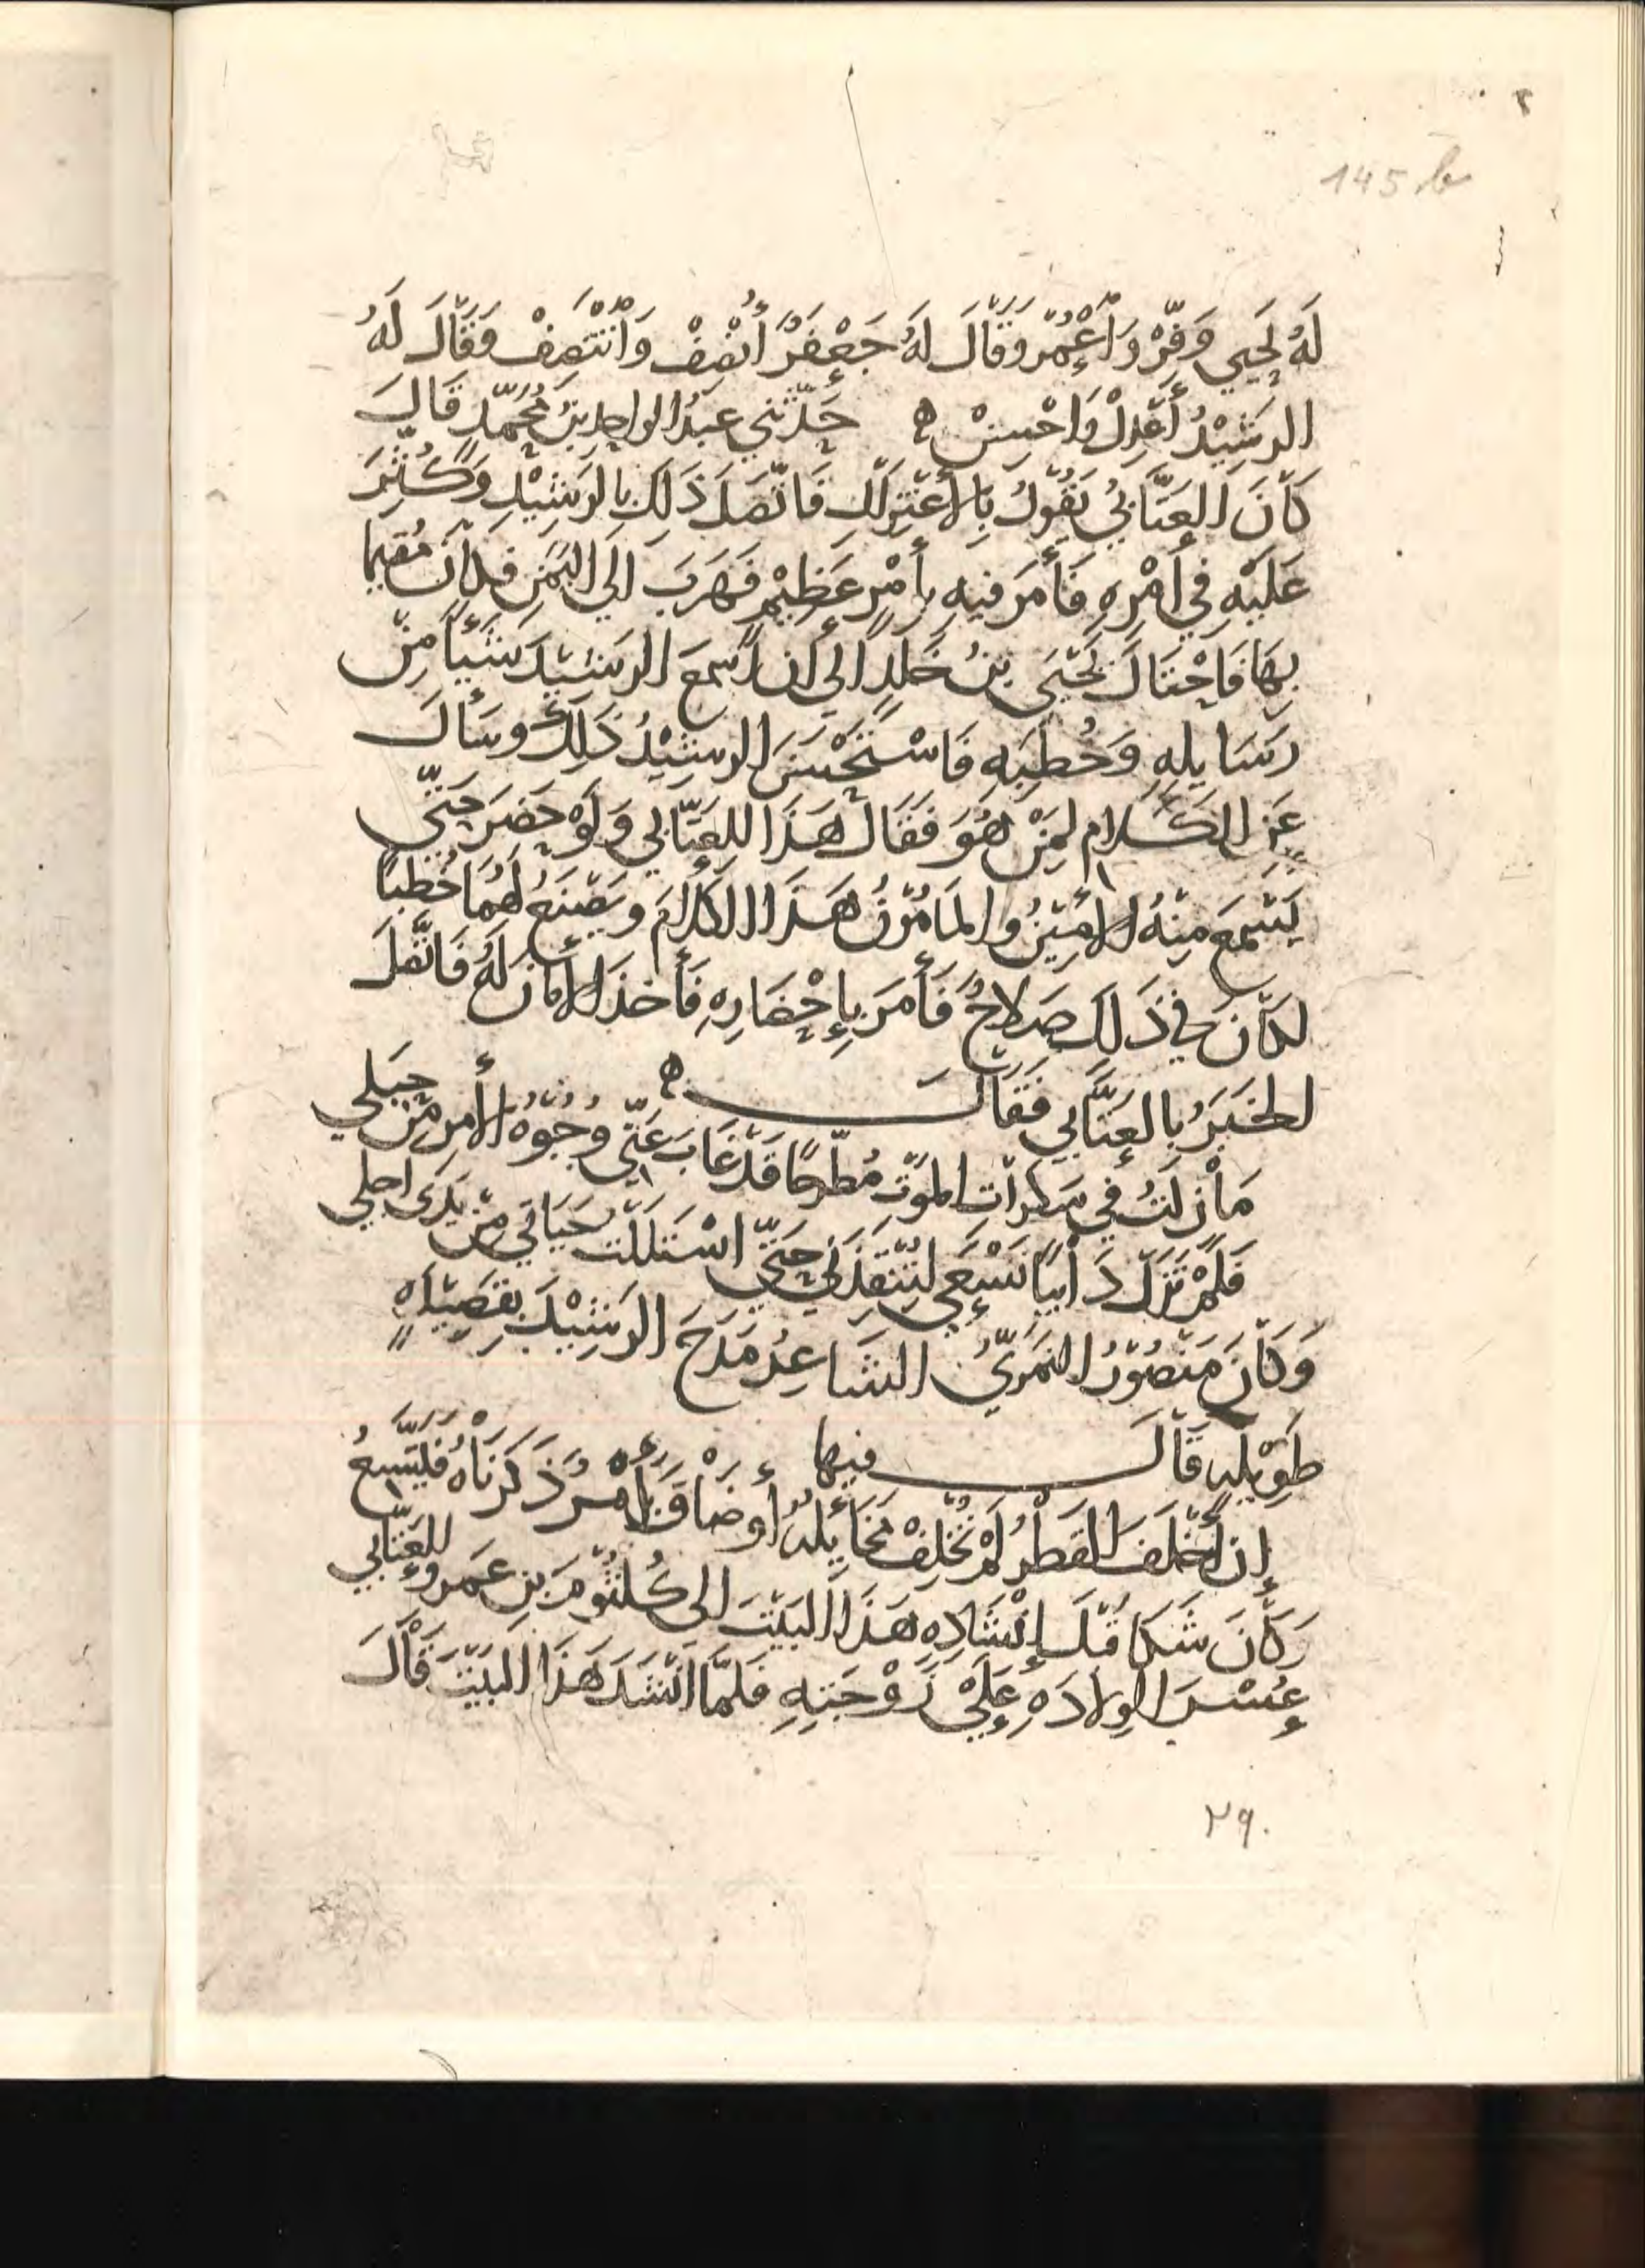 ٢
145 b
لَهُ يَحيي وَفِّرْ وَأَعْمِرْ وَقَالَ لَهُ جَعْفَرٌ أَنْصِفْ وَانْتَصِفْ وَقَالَ لَهُ
الرَشِيْدُ أَعْدِلْ وَاحْسِنْ ه حَدَّثَنِي عَبدُ الواحِدِ بْنُ مُحَمَّدٍ قَالَ
كَانَ العَتَّابِيُّ يَقُولُ بِالأعْتِزالِ فَاتَّصَلَ ذَلِكَ بِالرَشِيْدِ وَكُثِّرَ
عَلَيْهِ فِي أَمْرِهِ فَأَمَرَ فِيهِ بِأَمْرٍ عَظِيْمٍ فَهَرَبَ الَي اليَمَنِ فكَانَ مُقِيمًا
بِهَا فَاحْتَالَ يَحْيَى بْنُ خَلدٍ الي أَن اَسْمَعَ الرَشِيْدَ شَيْأً مِنْ
رَسَايلِهِ وَخُطَبِهِ فَاسْتَحْسَنَ الرشِيْدُ ذَلِكَ وسَأَلَ
عَنِ الكَلامِ لِمَنْ هُوَ فَقَالَ هَذَا للعَتَّابي وَلَوْ حَضَرَ حَتَّي
يَسْمَعَ مِنْهُ الأَمِيْنُ والمَأمُوْنُ هَذَا الكَلَامَ ويَصْنَعُ لَهُمَا خُطَبًا
لكَانَ في ذَلِكَ صَلَاحٌ فَأَمَرَ بِإحْضَارِهِ فَأَخذَ الأَمَانَ لَهُ فَاتَّصَلَ
الخَبَرُ بالعَتَّابي فَقَالَ ه
مَا زلتُ في سَكَراتِ المَوْتِ مُطَّرحًا قَدْ غَابَ عَنِّي وُجُوْهُ الأَمرِ مِنْ حِيَلي
فَلَمْ تَزَلْ دَائِبًا تَسْعَى لِتُنْقِذَنِي حَتَّى اسْتَلَلْتَ حَيَاتي مِنْ يَدَى اجلي
وَكَانَ مَنْصُوْرٌ النَمَرِيُّ الشَاعِرُ مَدَحَ الرَشِيْدَ بِقَصِيْدَهٍ
طَوِيْله قَالَ فيها
إن أَخْلَفَ القَطْرُ لَمْ تُخْلِفْ مَخَايلُهُ أو ضَاقَ أَمْرٌ ذَكَرنَاهُ فَيَتَّسِعُ
وَكَانَ شَكَا قَبْلَ إنْشَادِهِ هَذَا البَيْتَ الى كُلثُوْمَ بنِ عَمرو العَتّابي
عُسْرَ الوِلادَهِ عَلَيْ زَوْجَتِهِ فَلمَّا انْشَدَ هَذَا البَيْتَ قَالَ
٢٩٠